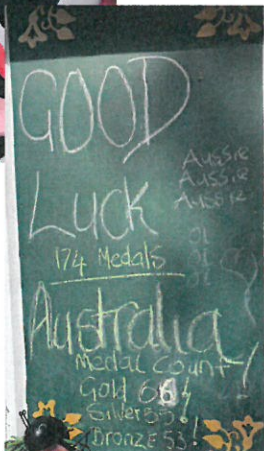 GOOD
Luck
Aussie
Aussie
Aussie
oi
oi
oi
174 Medals
Australia
Medal Count
Gold 66!
Silver 55!
Bronze 53!